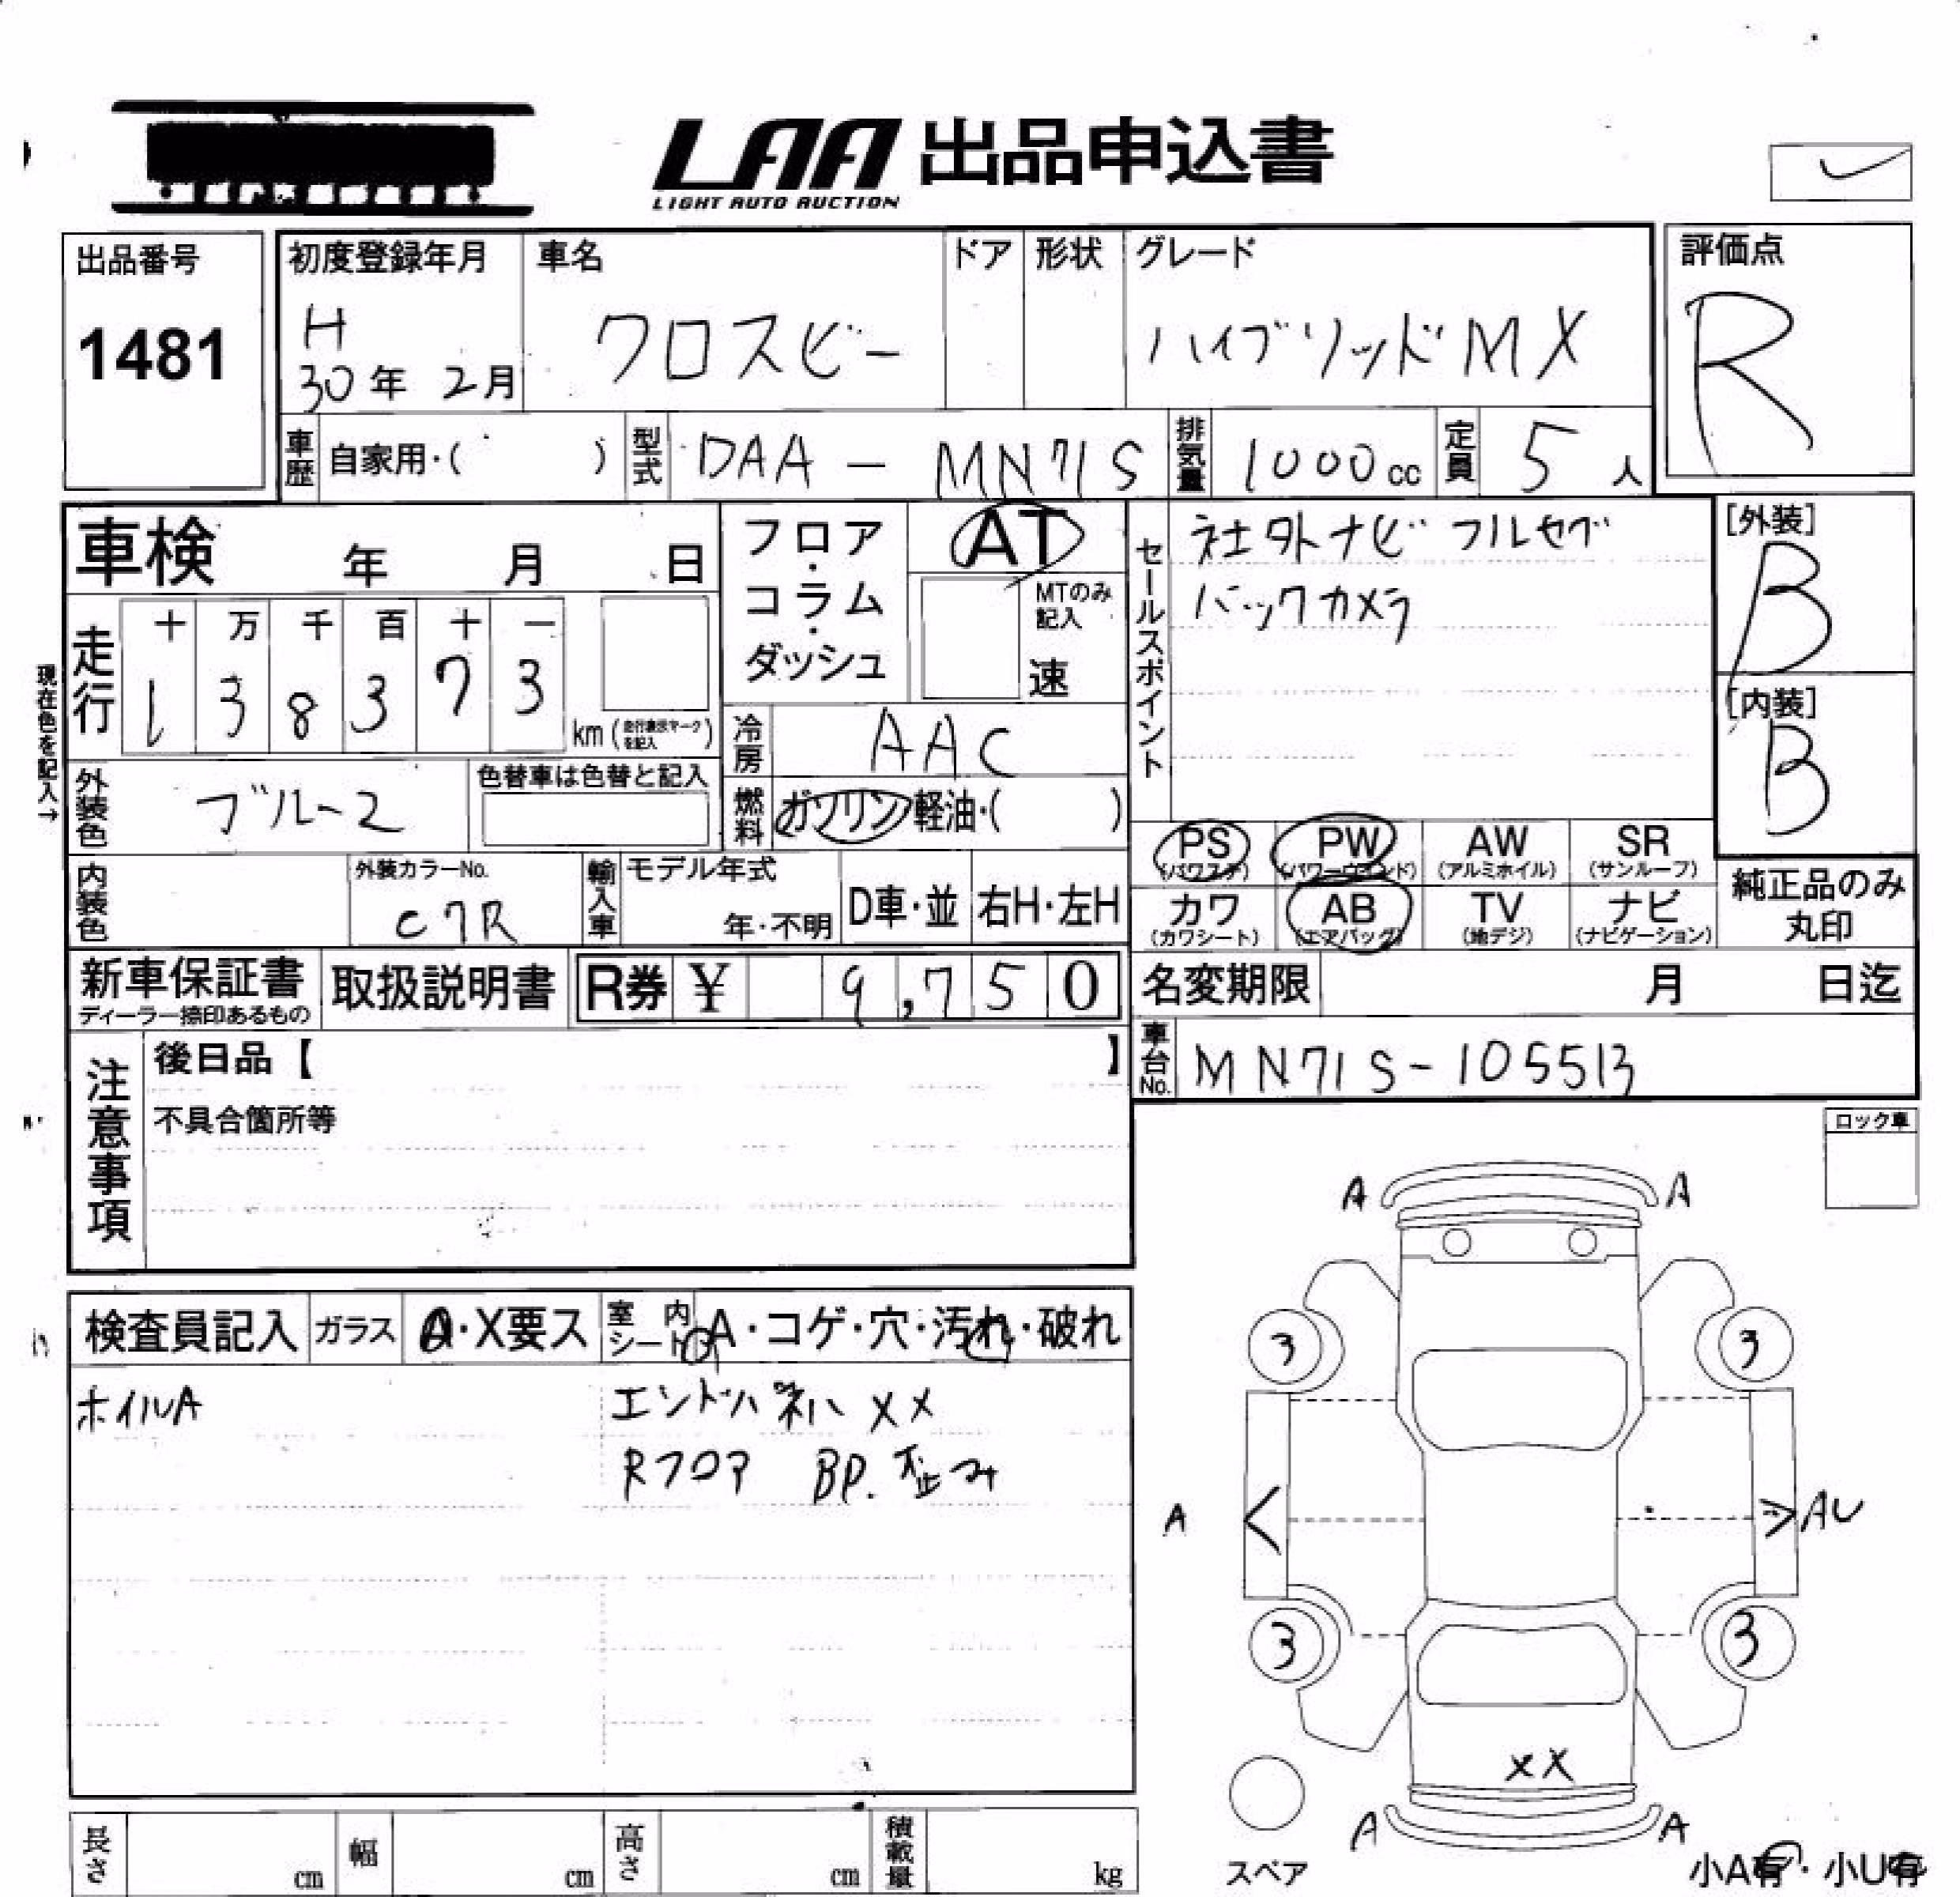 LAA 出品申込書
LIGHT AUTO AUCTION
出品番号
1481
初度登録年月
H
30年 2月
車名
クロスビー
ドア
形状
グレード
ハイブリッドMX
評価点
R
車歴 自家用・( )
型式 DAA - MN71S
排気量 1000cc
定員 5人
車検 年 月 日
フロア・コラム・ダッシュ
AT
MTのみ記入
速
セールスポイント
社外ナビ フルセグ
バックカメラ
[外装]
B
[内装]
B
現在色を記入→
走行
十 万 千 百 十 一
1 3 8 3 7 3
km(走行表示マークを記入)
冷房 AAC
外装色 ブルー2
色替車は色替と記入
燃料 ガソリン・軽油・( )
PS (パワステ)
PW (パワーウインド)
AW (アルミホイル)
SR (サンルーフ)
カワ (カワシート)
AB (エアバッグ)
TV (地デジ)
ナビ (ナビゲーション)
純正品のみ
丸印
内装色
外装カラーNo.
C7R
輸入車
モデル年式
年・不明
D車・並
右H・左H
新車保証書
ディーラー捺印あるもの
取扱説明書
R券 ¥ 9,750
名変期限 月 日迄
車台No. MN71S-105513
注意事項
後日品【 】
不具合箇所等
ロック車
検査員記入
ガラス
A・X要ス
室内シート
A・コゲ・穴・汚れ・破れ
ホイルA
エンドパネル XX
Rフロア BP. 歪み
A A
3 3
A AU
3 3
XX
A A
スペア
小A有・小U有
長さ cm
幅 cm
高さ cm
積載量 kg